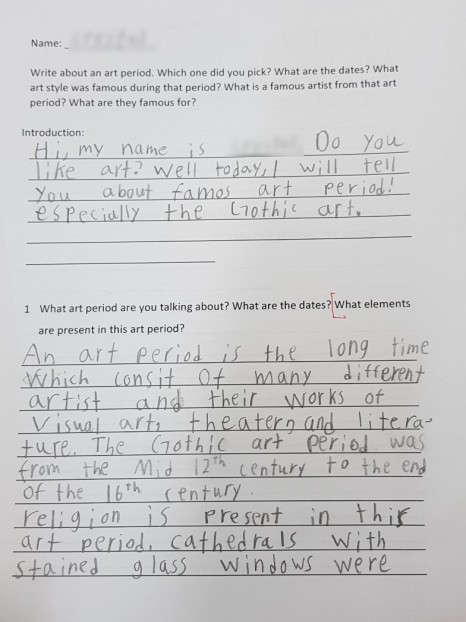 Name:_
Write about an art period. Which one did you pick? What are the dates? What
art style was famous during that period? What is a famous artist from that art
period? What are they famous for?
Introduction:
Hi, my name is
Do you
like art? Well today, I will tell
You about famos art period!
especially the Gothic art.
1 What art period are you talking about? What are the dates? What elements
are present in this art period?
An art period is the long time
Which consit Of many different
artist and their works of
Visual art, theater, and litera-
ture. The Gothic art period was
from the Mid 12th century to the end
Of the 16th century.
religion is present in this
art period. Cathedrals with
stained glass windows were